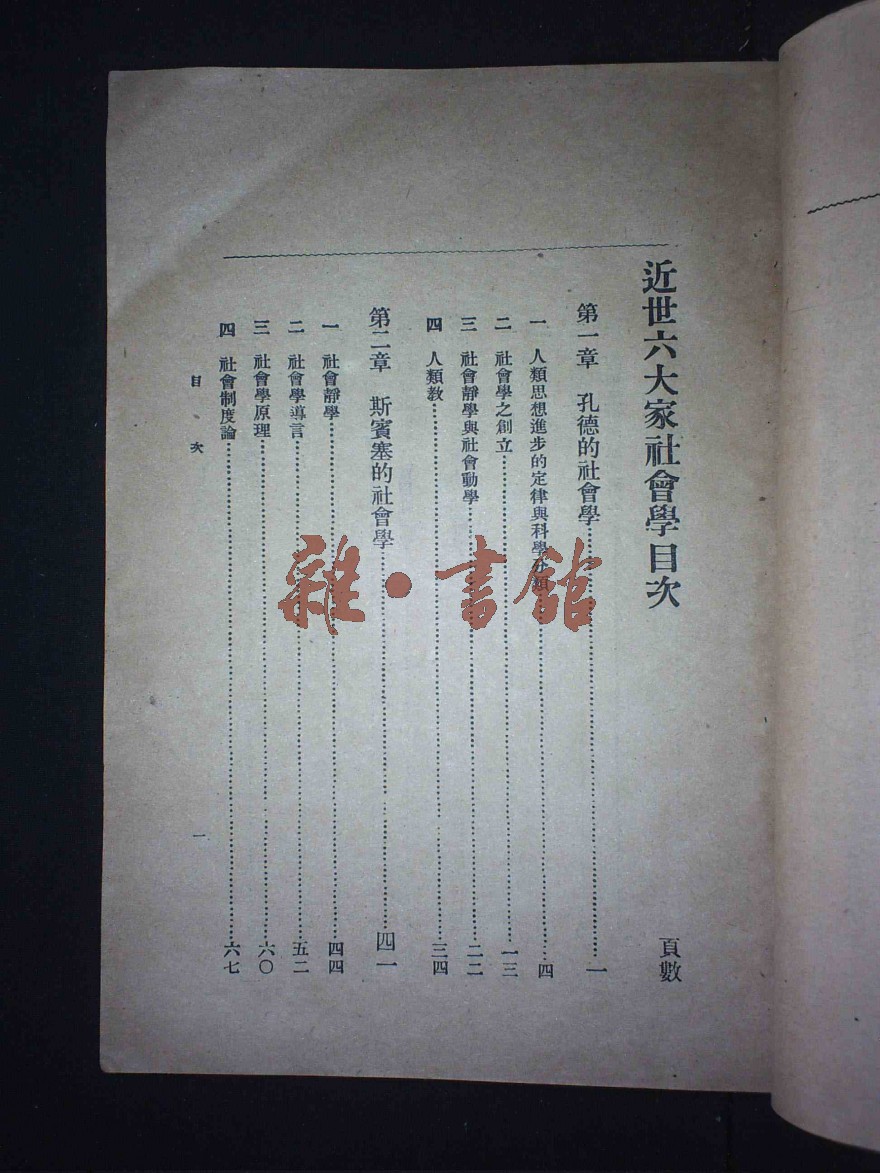 近世六大家社會學目次
頁數
第一章 孔德的社會學……一
一 人類思想進步的定律與科學分類……四
二 社會學之創立……一三
三 社會靜學與社會動學……二二
四 人類教……三四
第二章 斯賓塞的社會學……四一
一 社會靜學……四四
二 社會學導言……五二
三 社會學原理……六〇
四 社會制度論……六七
目次
一
雜·書館